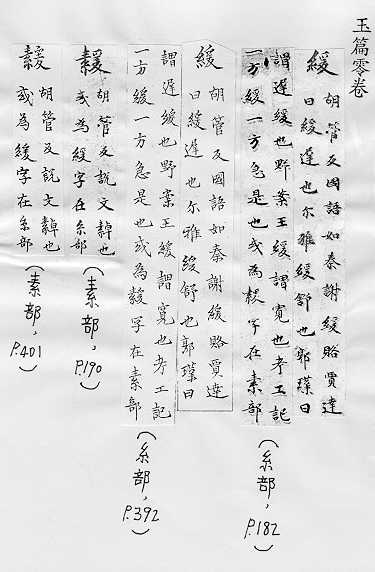 玉篇零卷
緩 胡管反國語如秦謝緩賂賈逵
曰緩遲也尒雅緩舒也郭璞曰
謂遲緩也野案王緩謂寬也考工記
一方緩一方急是也或為字在素部
(糸部, P.182)
緩 胡管反國語如秦謝緩賂賈逵
曰緩遲也尒雅緩舒也郭璞曰
謂遲緩也野案王緩謂寬也考工記
一方緩一方急是也或為字在素部
(糸部, P.392)
胡管反說文繛也
或為緩字在糸部
(素部, P.190)
胡管反說文繛也
或為緩字在糸部
(素部, P.401)